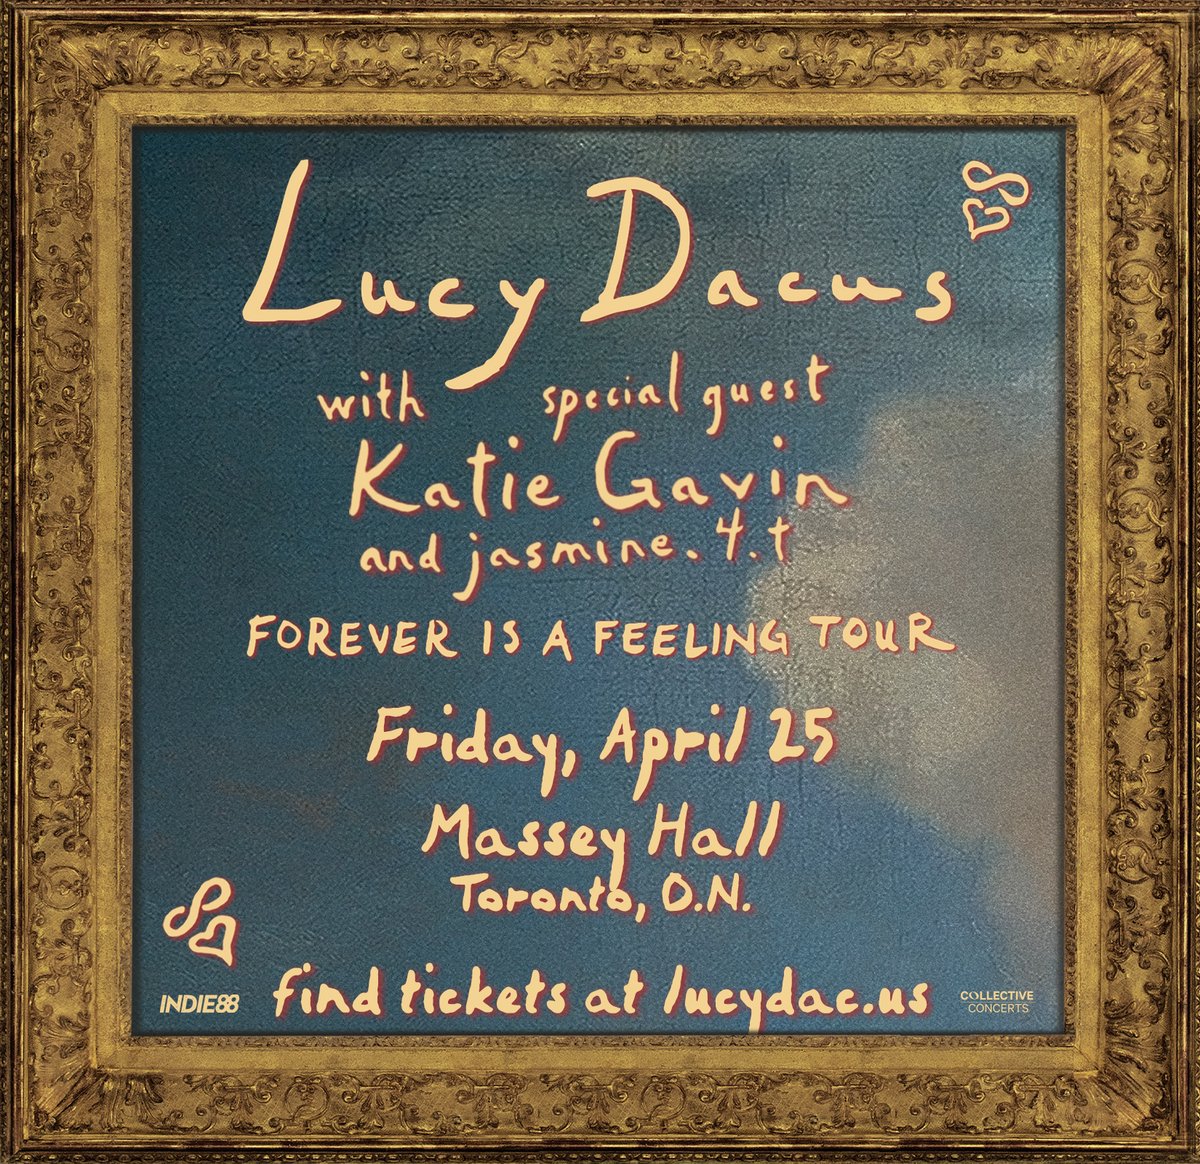 Lucy Dacus
with special guest
Katie Gavin
and jasmine.4.t
FOREVER IS A FEELING TOUR
Friday, April 25
Massey Hall
Toronto, O.N.
find tickets at lucydac.us
INDIE88
COLLECTIVE
CONCERTS